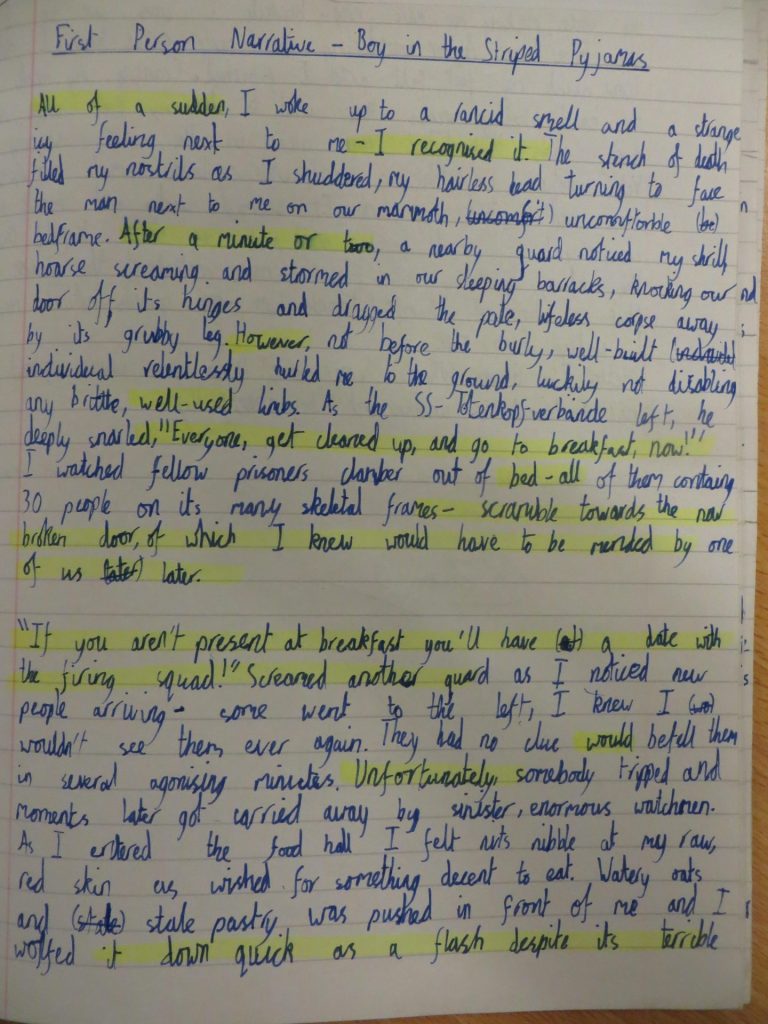 First Person Narrative - Boy in the Striped Pyjamas
All of a sudden, I woke up to a rancid smell and a strange
icy feeling next to me - I recognised it. The stench of death
filled my nostrils as I shuddered, my hairless head turning to face
the man next to me on our mammoth, uncomfortable (be)
bedframe. After a minute or two, a nearby guard noticed my shrill,
hoarse screaming and stormed in our sleeping barracks, knocking our
door off its hinges and dragged the pale, lifeless corpse away
by its' grubby leg. However, not before the burly, well-built
individual relentlessly hurled me to the ground, luckily not disabling
any brittle, well-used limbs. As the SS-Totenkopfverbande left, he
deeply snarled, "Everyone, get cleaned up, and go to breakfast, now!"
I watched fellow prisoners clamber out of bed - all of them containg
30 people on its many skeletal frames - scramble towards the now
broken door, of which I knew would have to be mended by one
of us (later) later.
"If you aren't present at breakfast you'll have a date with
the firing squad!" Screamed another guard as I noticed new
people arriving - some went to the left, I knew I (wo)
wouldn't see them ever again. They had no clue would befell them
in several agonising minutes. Unfortunately, somebody tripped and
moments later got carried away by sinister, enormous watchmen.
As I entered the food hall I felt nits nibble at my raw,
red skin as wished for something decent to eat. Watery oats
and (stale) stale pastry was pushed in front of me and I
wolfed it down quick as a flash despite its terrible